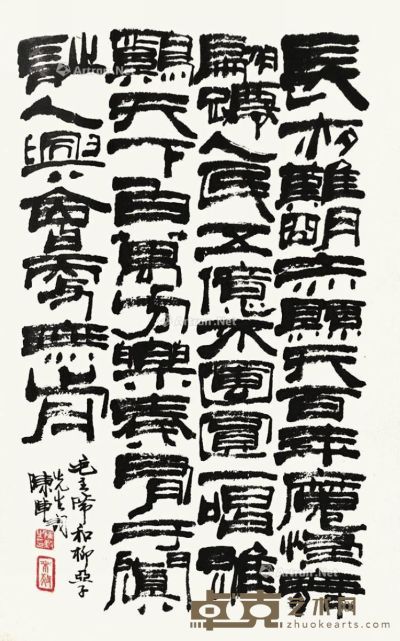 長夜難明赤縣天百年魔怪舞
翩躚人民五億不團圓一唱雄
鷄天下白萬方樂奏有于闐
詩人興會更無前
毛主席和柳亞子
先生詞
陳
Artron.Net
卓克艺术网
zhuokearts.com